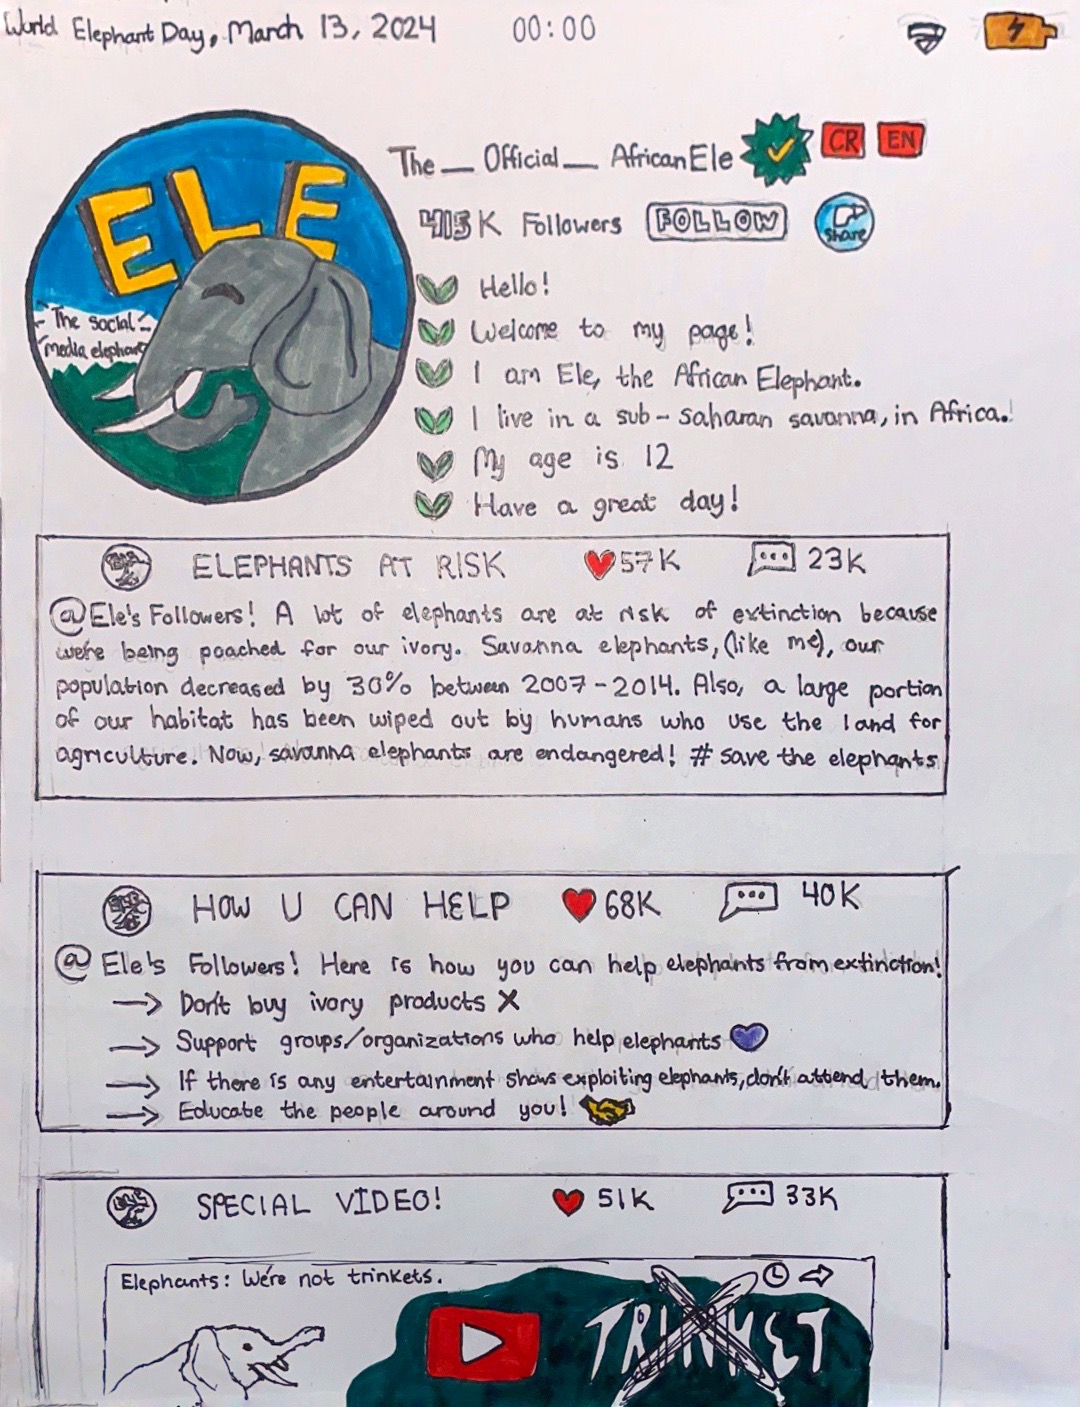 World Elephant Day, March 13, 2024 00:00
ELE
The social
media elephant
The _ Official _ AfricanEle CR EN
415K Followers FOLLOW share
Hello!
Welcome to my page!
I am Ele, the African Elephant.
I live in a sub-saharan savanna, in Africa.
My age is 12
Have a great day!
ELEPHANTS AT RISK 57K 23K
@Ele's Followers! A lot of elephants are at risk of extinction because
we're being poached for our ivory. Savanna elephants, (like me), our
population decreased by 30% between 2007-2014. Also, a large portion
of our habitat has been wiped out by humans who use the land for
agriculture. Now, savanna elephants are endangered! # save the elephants
HOW U CAN HELP 68K 40K
@ Ele's Followers! Here is how you can help elephants from extinction!
→ Don't buy ivory products X
→ Support groups/organizations who help elephants
→ If there is any entertainment shows exploiting elephants, don't attend them.
→ Educate the people around you!
SPECIAL VIDEO! 51K 33K
Elephants: We're not trinkets.
TRINKET